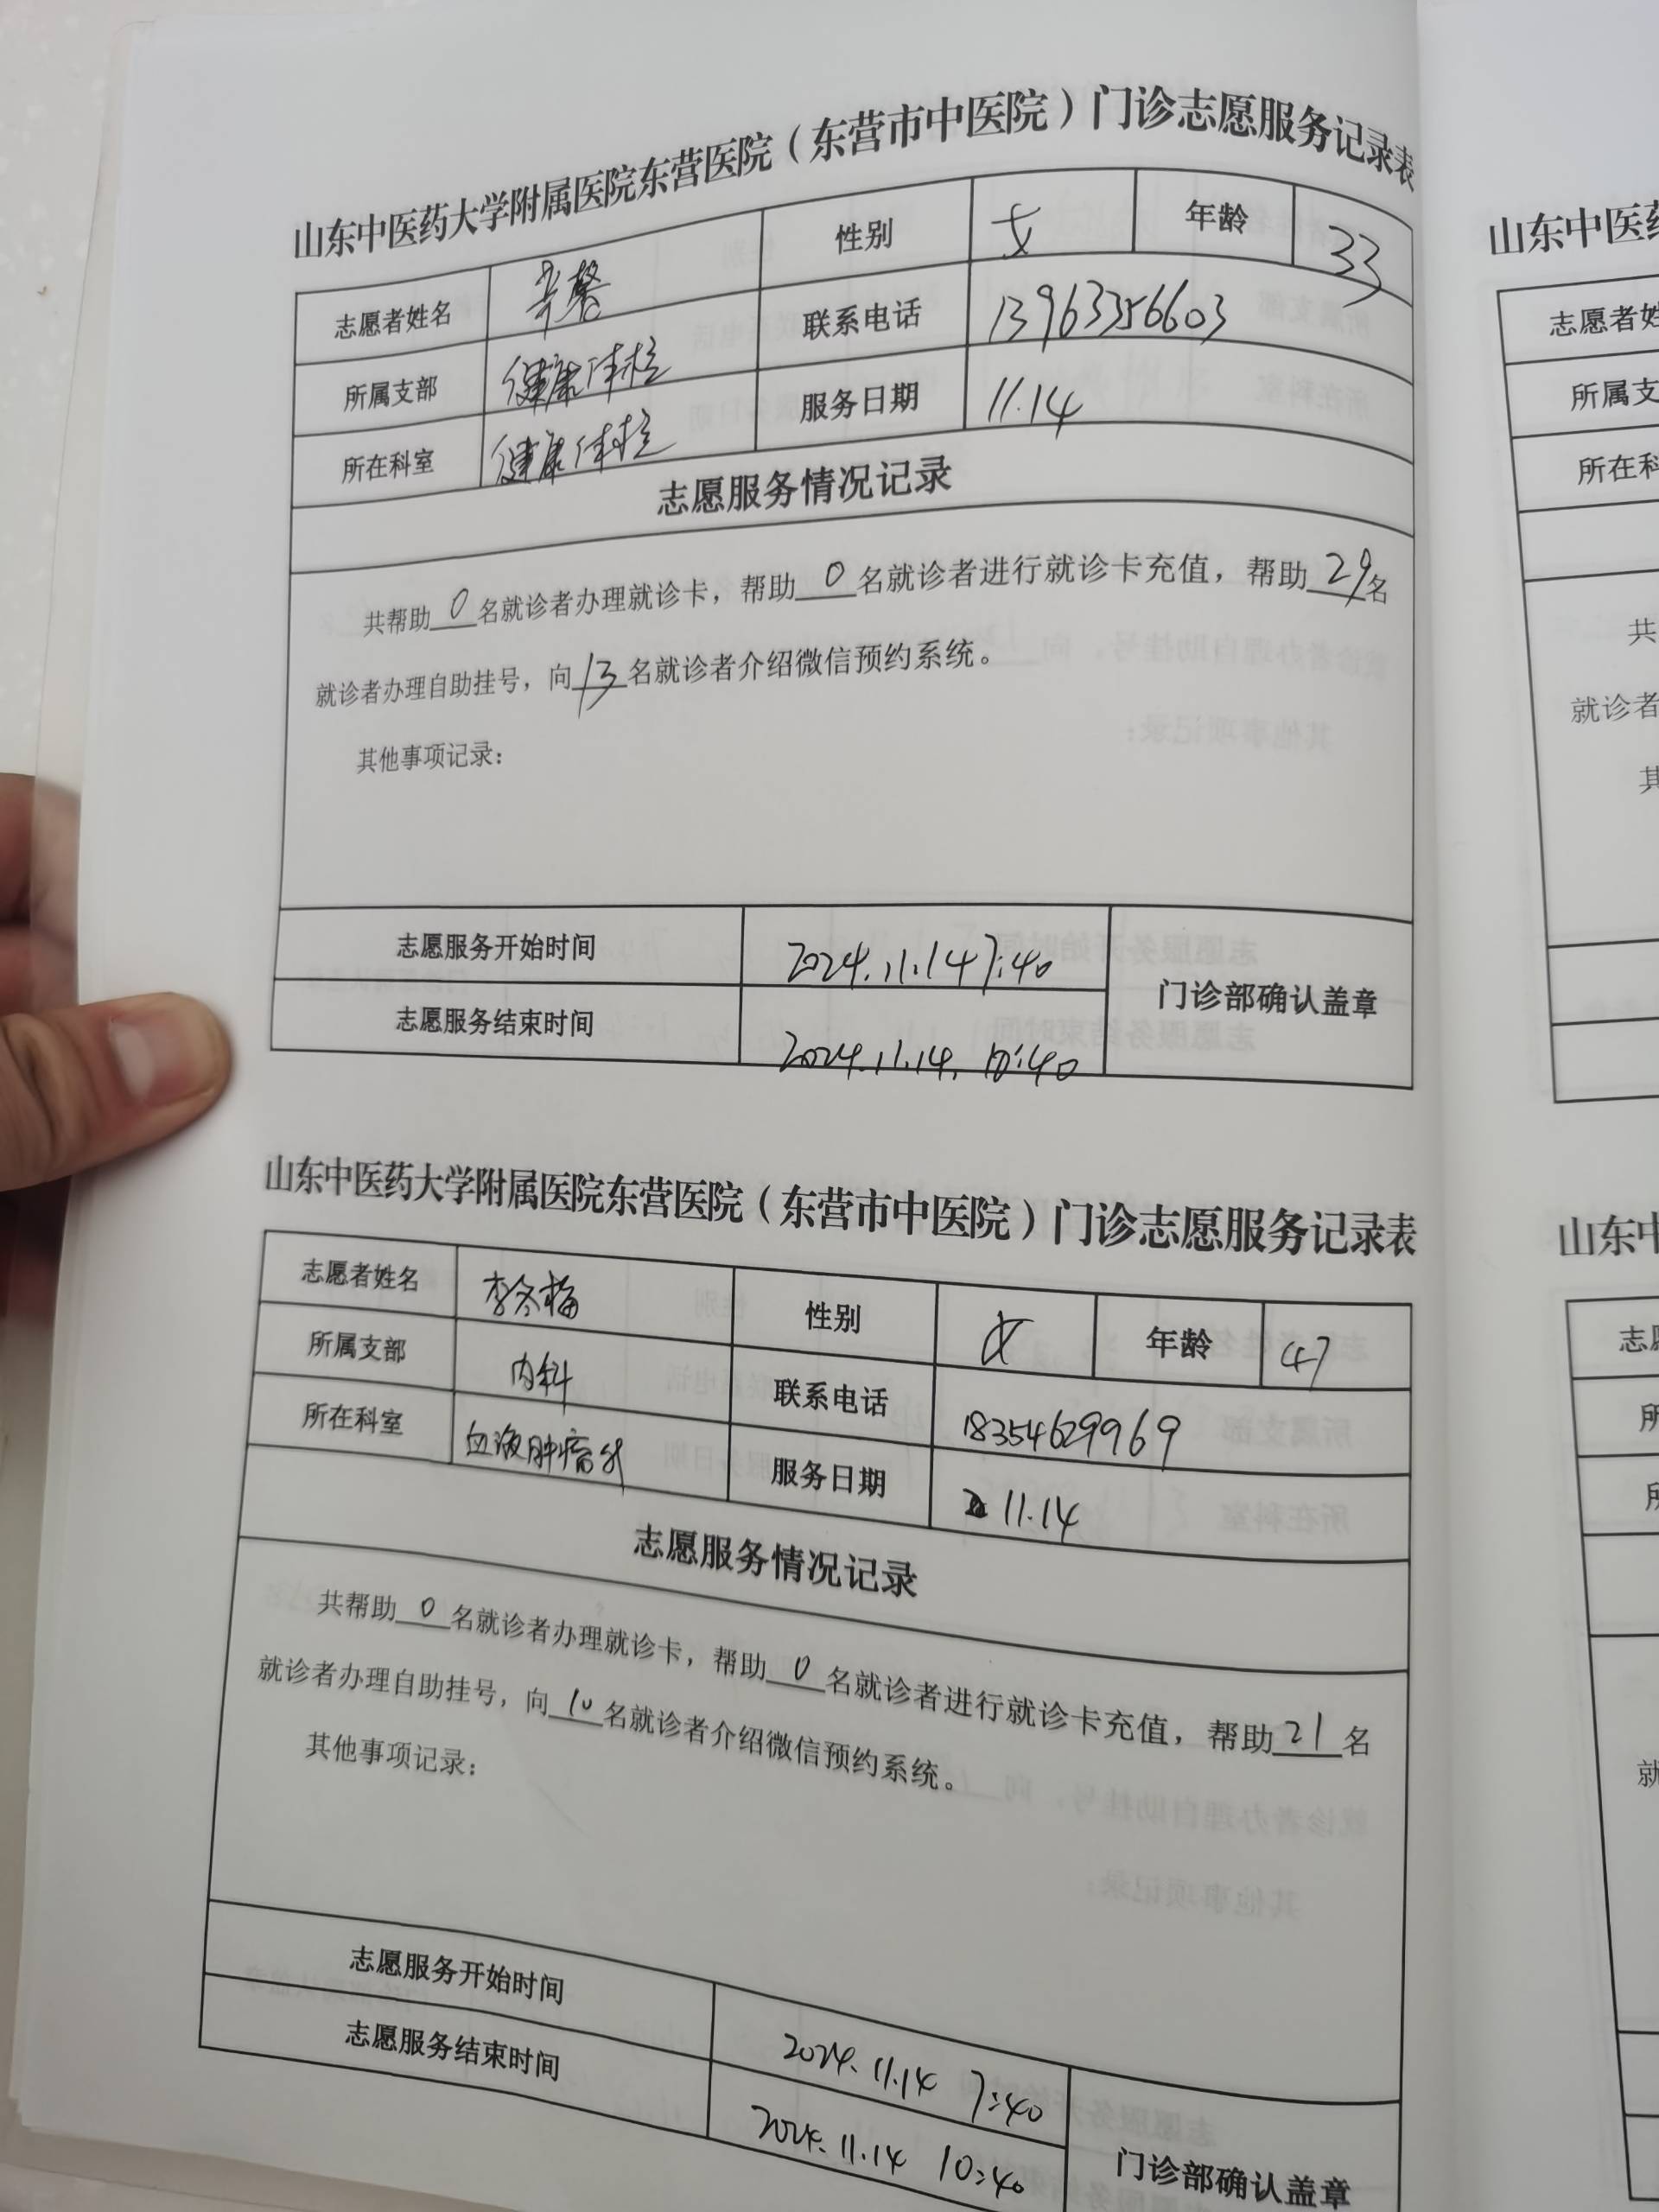 山东中医药大学附属医院东营医院（东营市中医院）门诊志愿服务记录表
志愿者姓名 辛馨 性别 女 年龄 33
所属支部 健康体检 联系电话 13963356603
所在科室 健康体检 服务日期 11.14
志愿服务情况记录
共帮助 0 名就诊者办理就诊卡，帮助 0 名就诊者进行就诊卡充值，帮助 29 名
就诊者办理自助挂号，向 13 名就诊者介绍微信预约系统。
其他事项记录：
志愿服务开始时间 2024.11.14 7:40
门诊部确认盖章
志愿服务结束时间 2024.11.14. 10:40
山东中医药大学附属医院东营医院（东营市中医院）门诊志愿服务记录表
志愿者姓名 李冬梅 性别 女 年龄 47
所属支部 内科 联系电话 18354629969
所在科室 血液肿瘤科 服务日期 11.14
志愿服务情况记录
共帮助 0 名就诊者办理就诊卡，帮助 0 名就诊者进行就诊卡充值，帮助 21 名
就诊者办理自助挂号，向 10 名就诊者介绍微信预约系统。
其他事项记录：
志愿服务开始时间 2024.11.14 7:40
志愿服务结束时间 2024.11.14 10:40
门诊部确认盖章
山东中医
志愿者姓
所属支
所在科
共
就诊者
其
山东中
志
所
所
就